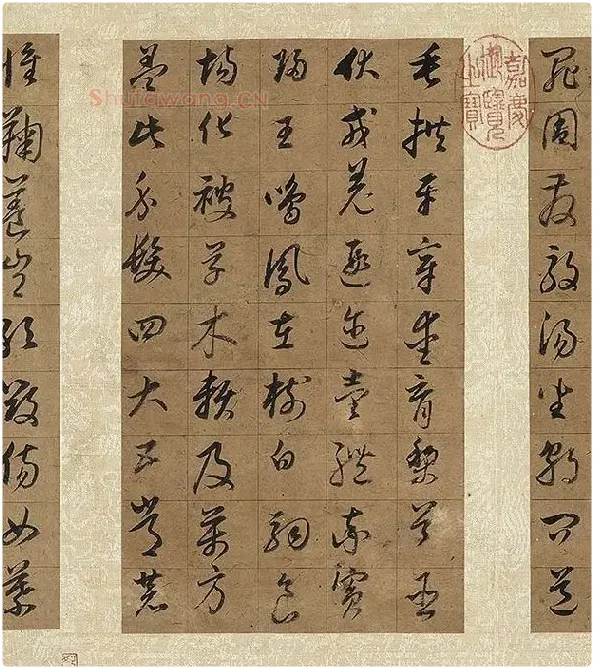 罪周發殷湯坐朝問道
垂拱平章愛育黎首臣
伏戎羌遐邇壹體率賓
歸王鳴鳳在樹白駒食
場化被草木賴及萬方
蓋此身髮四大五常恭
惟鞠養豈敢毀傷女慕
嘉慶御覽之寶
Shufawang.CN